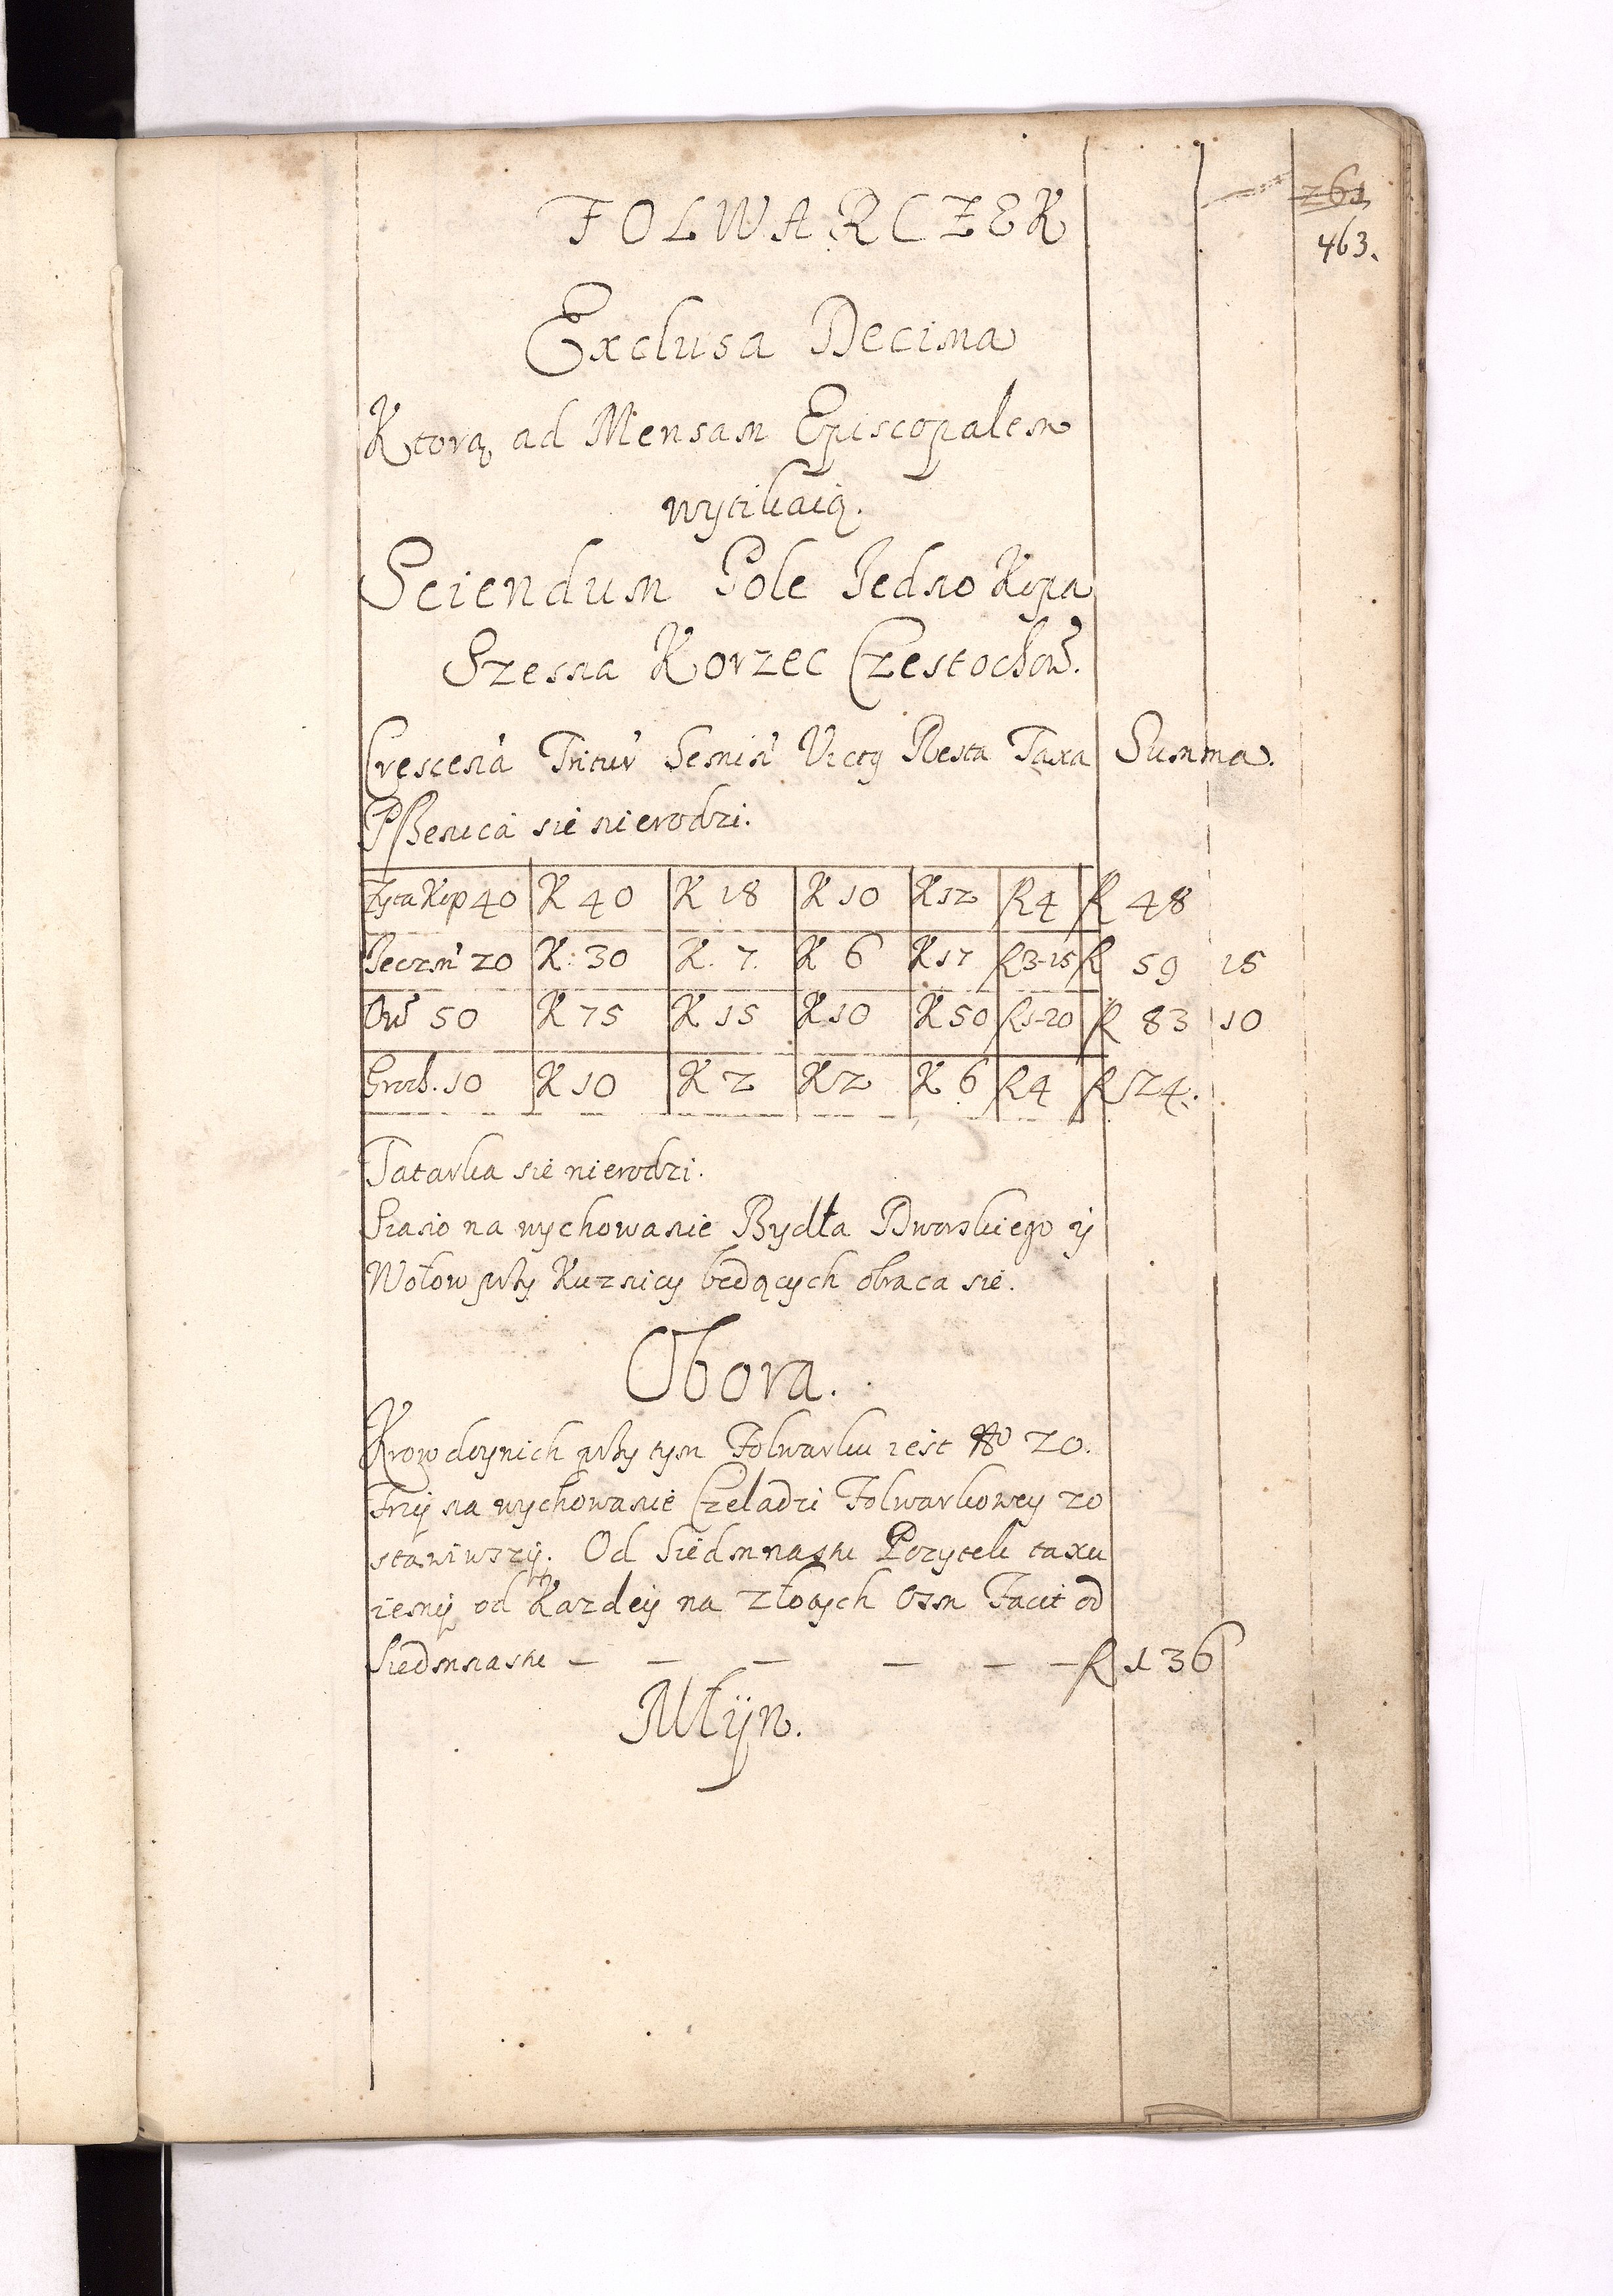 261
463.
FOLWARCZEK
Exclusa Decima
Ktorą ad Mensam Episcopalem
wytikaią.
Sciendum Pole Jedno Kopa
Szesna Korzec Częstochow.
Crescen Tritur Semin Victq Resta Taxa Summa.
Pszenica sie nierodzi.
Zyta Kop 40 K 40 K 18 K 10 K 12 R 4 R 48
Jeczm 20 K: 30 K. 7. K 6 K 17 R 3-15 R 59 15
Ow 50 K 75 K 15 K 10 K 50 R 1-20 R 83 10
Groch. 10 K 10 K 2 K 2 K 6 R 4 R 24.
Tatarka sie nierodzi.
Siano na wychowanie Bydła Dworskiego ij
Wołow przy Kuznicy bedących obraca sie.
Obora.
Krow doynich przy tym Folwarku iest No 20.
Trzÿ na wychowanie Czeladzi Folwarkowey zo
stawiwszÿ. Od Siedmnastu Pozytek taxu
iemÿ od Kazdeÿ na złotych Osm Facit od
Siedmnastu — — — — — — R 136
Młÿn.